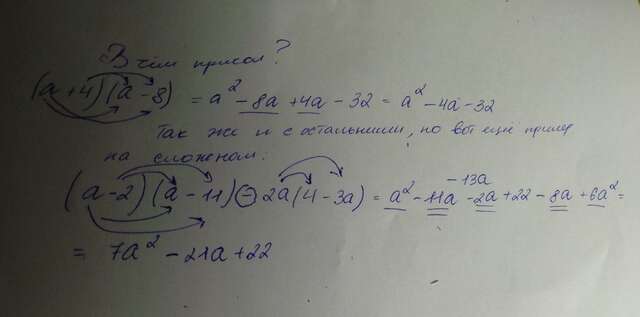 В чём прикол?
(a + 4)(a - 8) = a² - 8a + 4a - 32 = a² - 4a - 32
Так же и с остальными, но вот ещё пример
на сложеном:
- 13a
(a - 2)(a - 11) - 2a(4 - 3a) = a² - 11a - 2a + 22 - 8a + 6a² =
= 7a² - 21a + 22